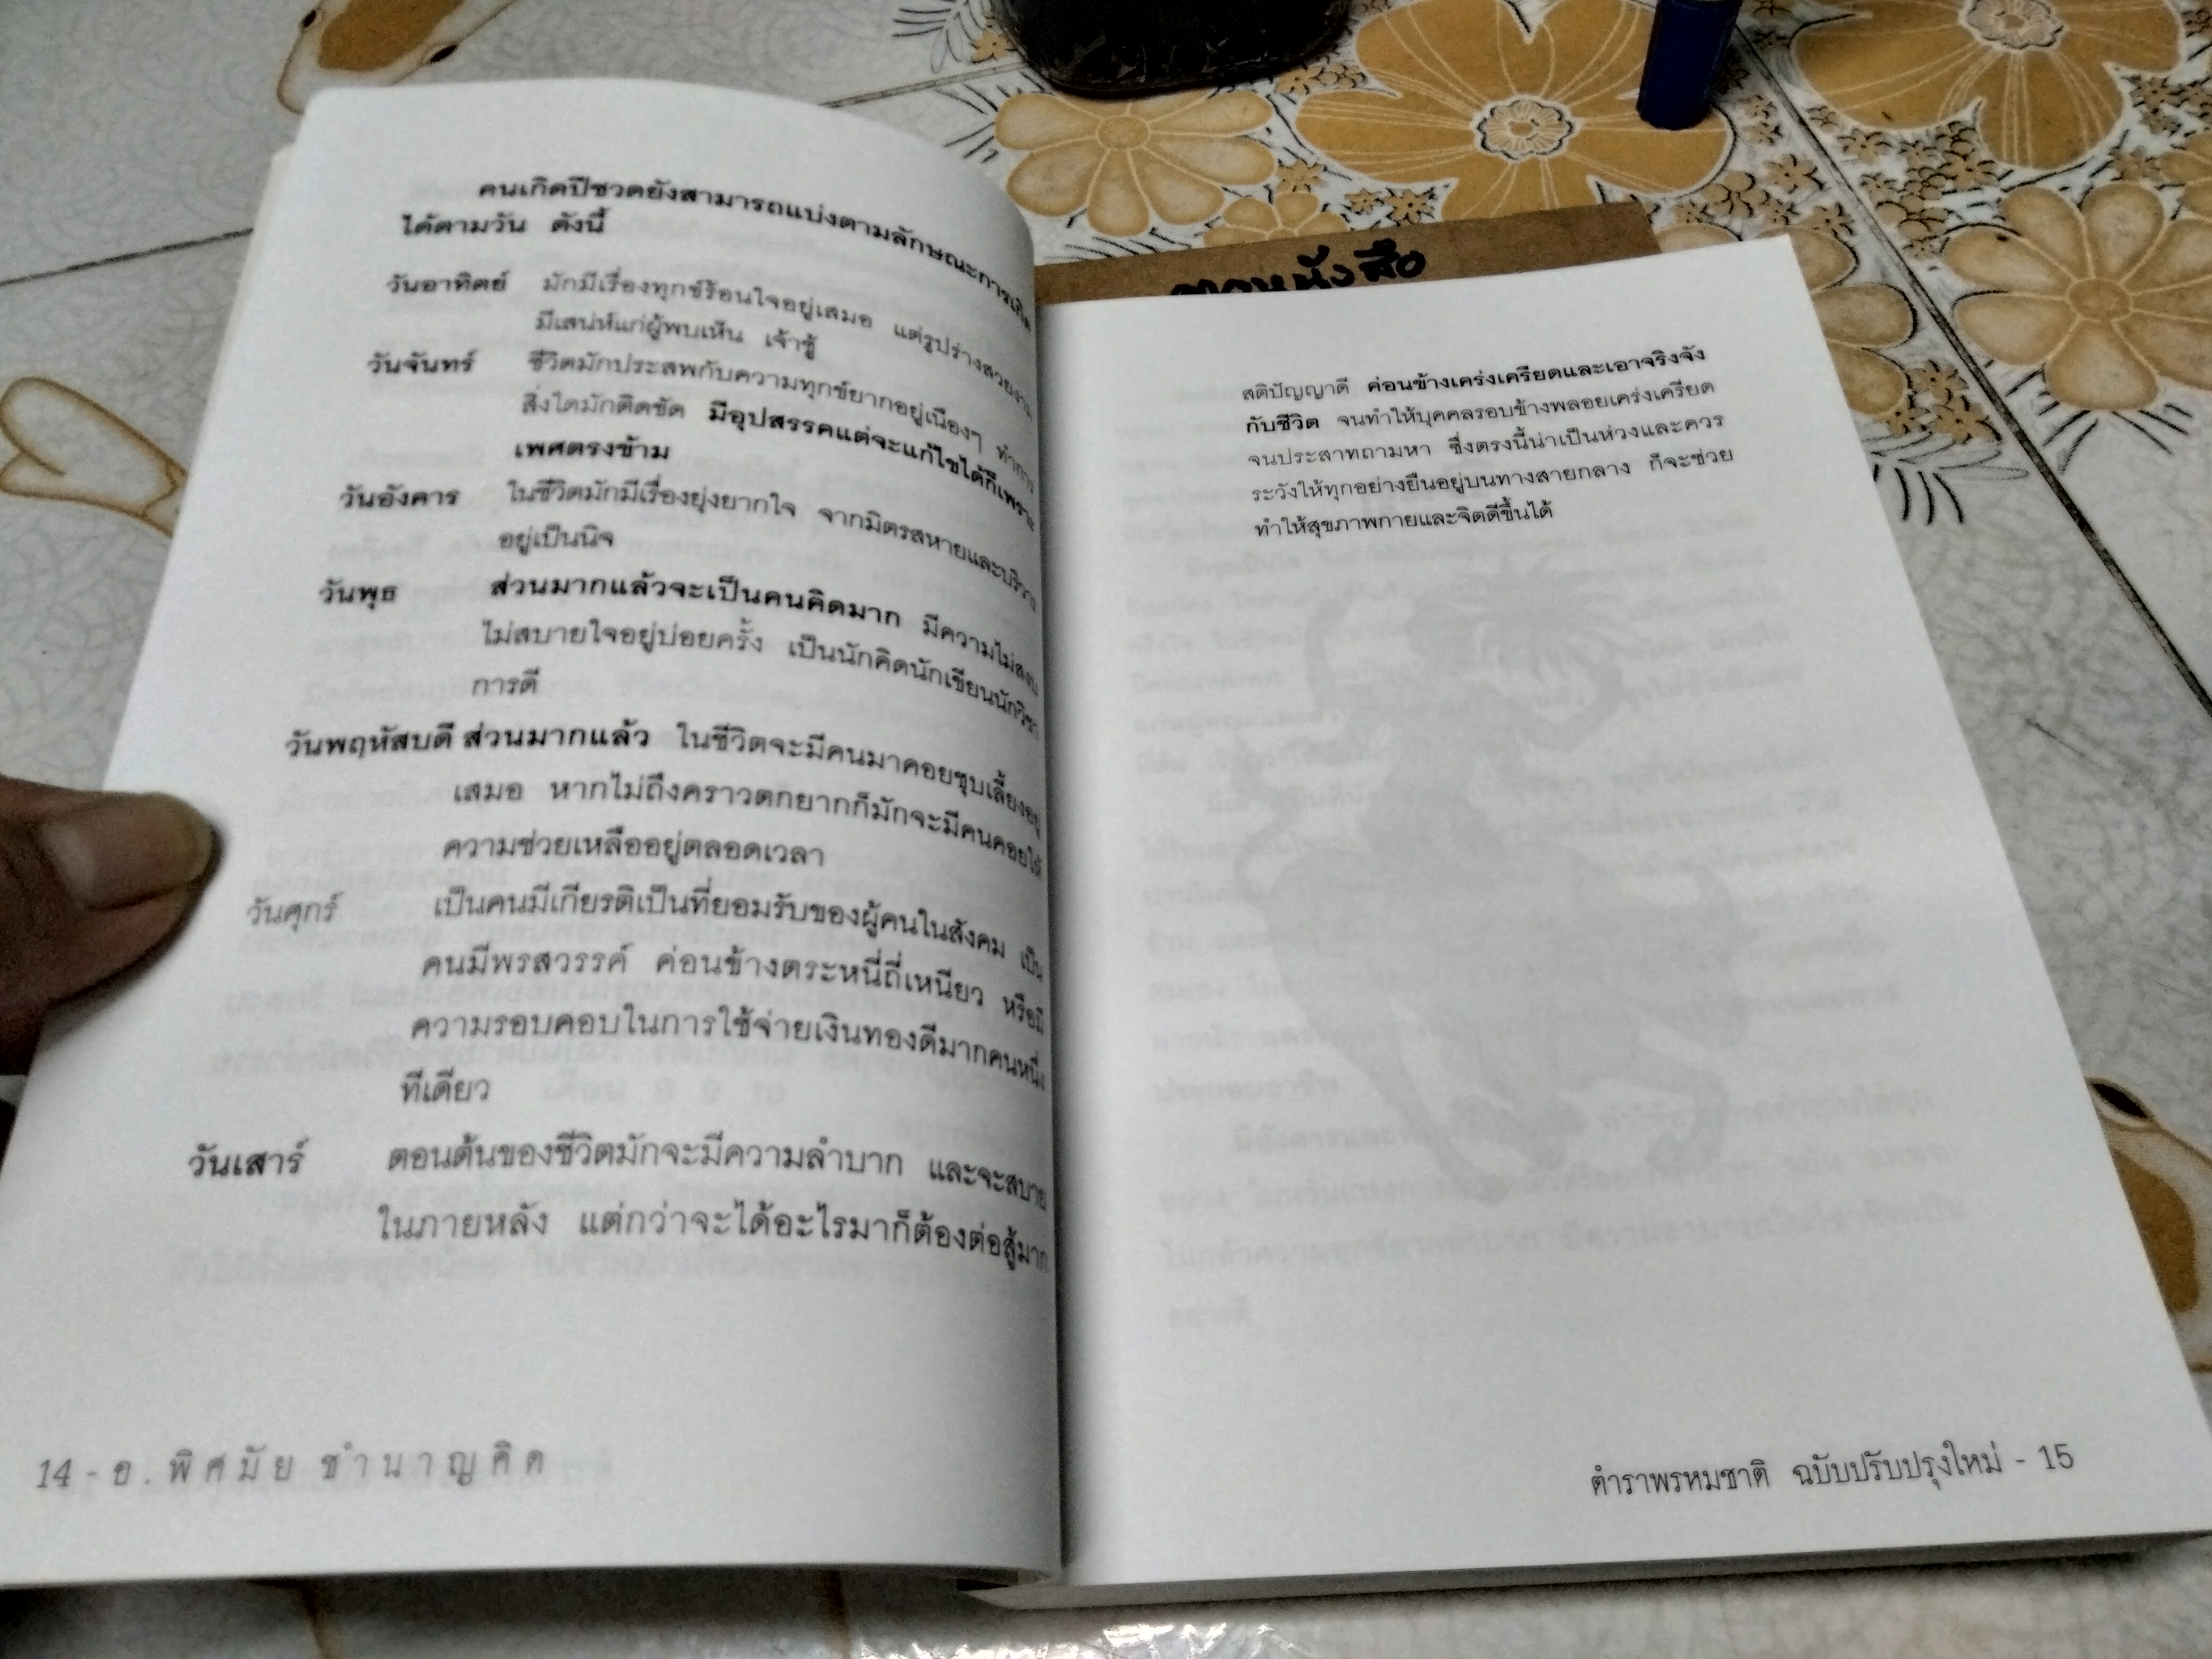 คนเกิดปีชวดยังสามารถแบ่งตามลักษณะการเกิด
ได้ตามวัน ดังนี้
วันอาทิตย์ มักมีเรื่องทุกข์ร้อนใจอยู่เสมอ แต่รูปร่างสวยงาม
มีเสน่ห์แก่ผู้พบเห็น เจ้าชู้
วันจันทร์ ชีวิตมักประสพกับความทุกข์ยากอยู่เนืองๆ ทำการ
สิ่งใดมักติดขัด มีอุปสรรคแต่จะแก้ไขได้ก็เพราะ
เพศตรงข้าม
วันอังคาร ในชีวิตมักมีเรื่องยุ่งยากใจ จากมิตรสหายและบริวาร
อยู่เป็นนิจ
วันพุธ ส่วนมากแล้วจะเป็นคนคิดมาก มีความไม่สงบ
ไม่สบายใจอยู่บ่อยครั้ง เป็นนักคิดนักเขียนนักวิชา
การดี
วันพฤหัสบดี ส่วนมากแล้ว ในชีวิตจะมีคนมาคอยชุบเลี้ยงอยู่
เสมอ หากไม่ถึงคราวตกยากก็มักจะมีคนคอยให้
ความช่วยเหลืออยู่ตลอดเวลา
วันศุกร์ เป็นคนมีเกียรติเป็นที่ยอมรับของผู้คนในสังคม เป็น
คนมีพรสวรรค์ ค่อนข้างตระหนี่ถี่เหนียว หรือมี
ความรอบคอบในการใช้จ่ายเงินทองดีมากคนหนึ่ง
ทีเดียว
วันเสาร์ ตอนต้นของชีวิตมักจะมีความลำบาก และจะสบาย
ในภายหลัง แต่กว่าจะได้อะไรมาก็ต้องต่อสู้มาก
14 - อ. พิศมัย ชำนาญคิด
หนังสือ
สติปัญญาดี ค่อนข้างเคร่งเครียดและเอาจริงจัง
กับชีวิต จนทำให้บุคคลรอบข้างพลอยเคร่งเครียด
จนประสาทถามหา ซึ่งตรงนี้น่าเป็นห่วงและควร
ระวังให้ทุกอย่างยืนอยู่บนทางสายกลาง ก็จะช่วย
ทำให้สุขภาพกายและจิตดีขึ้นได้
ตำราพรหมชาติ ฉบับปรับปรุงใหม่ - 15